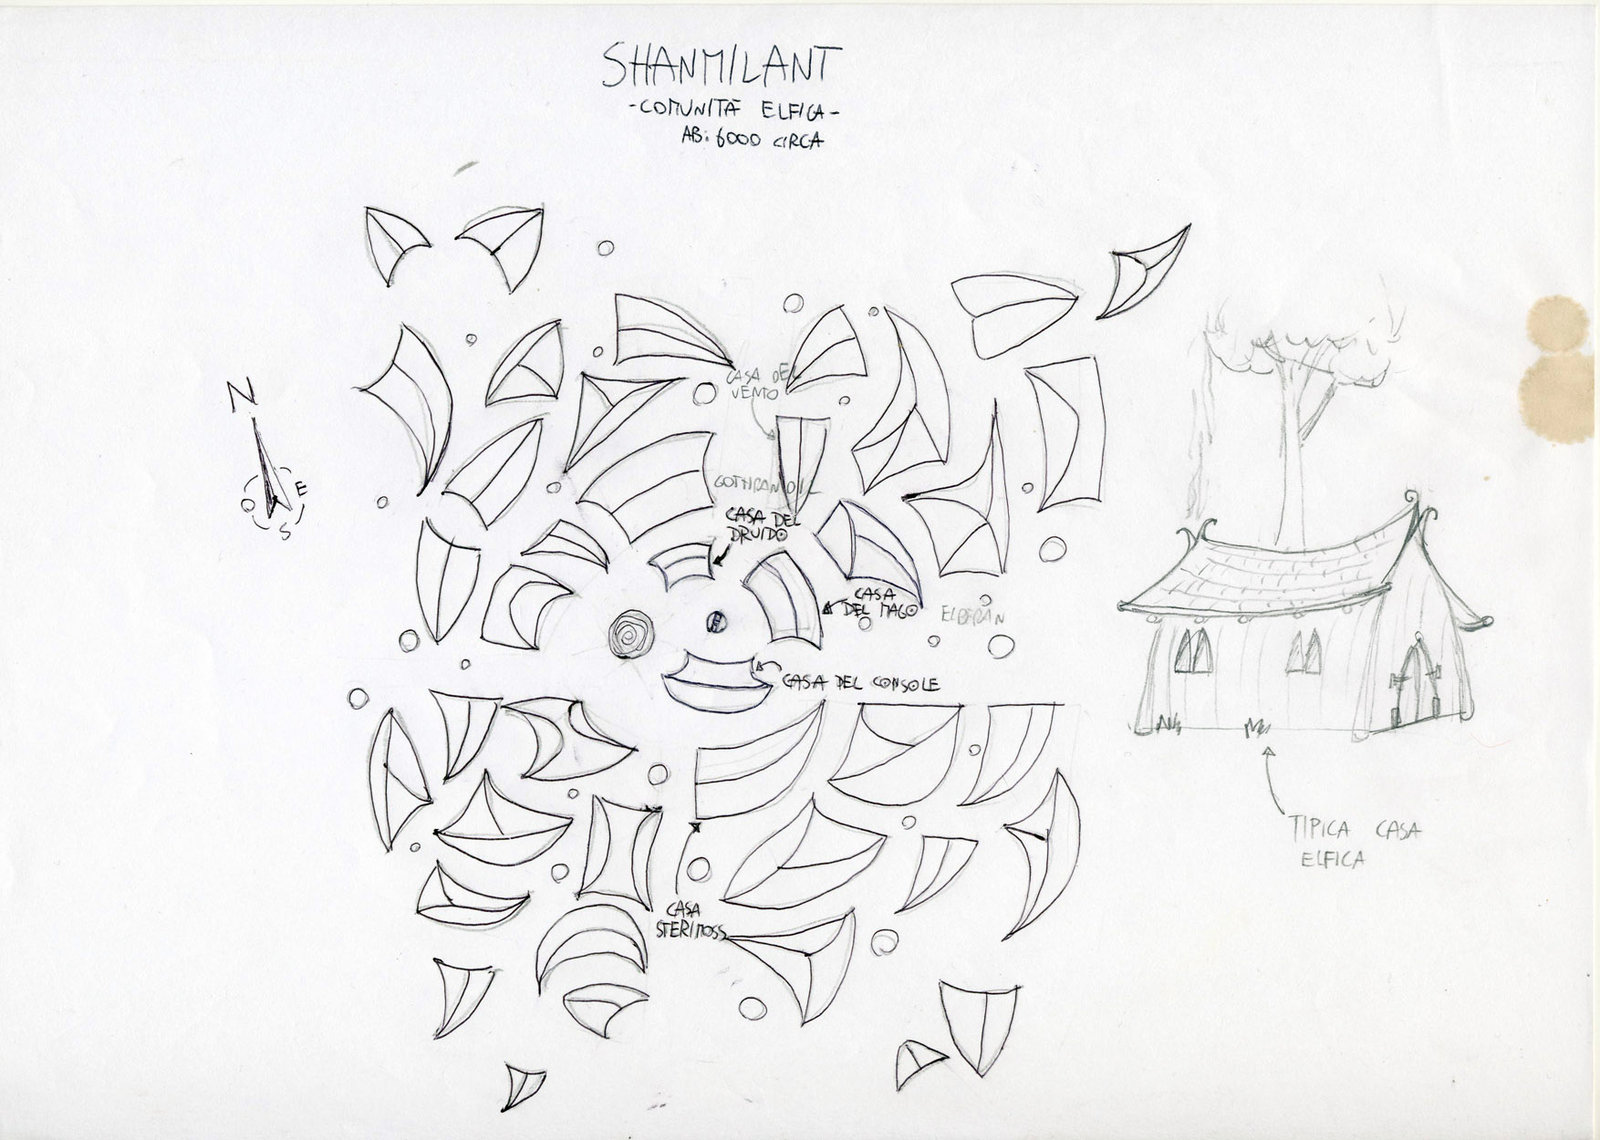 SHANMILANT
-COMUNITÀ ELFICA-
AB: 6000 CIRCA
N
E
O
S
CASA DEL
VENTO
CASA DEL
DRUIDO
CASA
DEL MAGO
ELBERAN
CASA DEL CONSOLE
CASA
STERIMOSS
TIPICA CASA
ELFICA